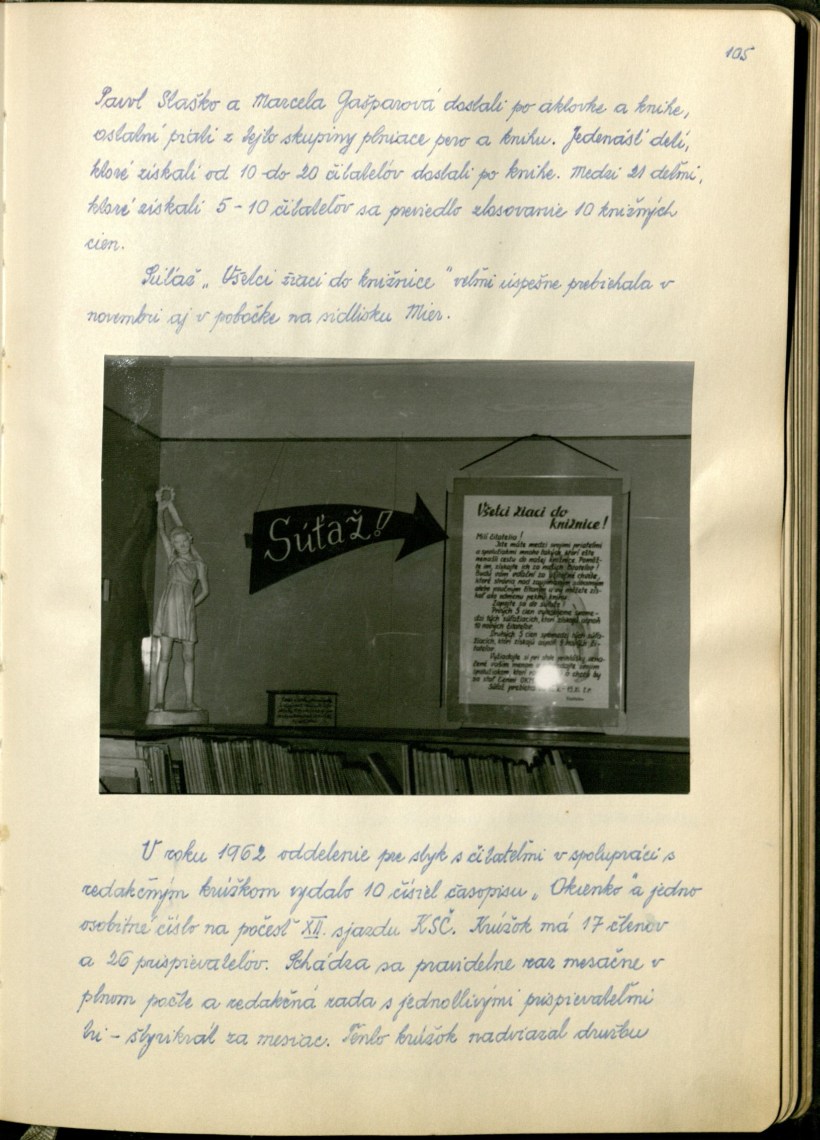 105
Pavol Slaško a Marcela Gašparová dostali po aktovke a knihe,
ostatní piati z tejto skupiny plniace pero a knihu. Jedenásť detí,
ktoré získali od 10 do 20 čitateľov dostali po knihe. Medzi 21 deťmi,
ktoré získali 5-10 čitateľov sa previedlo zlosovanie 10 knižných
cien.
Súťaž „Všetci žiaci do knižnice" veľmi úspešne prebiehala v
novembri aj v pobočke na sídlisku Mier.
Súťaž!
Všetci žiaci do
knižnice!
Milí čitatelia!
Iste máte medzi svojimi priateľmi
a spolužiakmi mnoho takých, ktorí ešte
nenašli cestu do našej knižnice.
Zapojte sa do súťaže!
10 nových čitateľov.
V roku 1962 oddelenie pre styk s čitateľmi v spolupráci s
redakčným krúžkom vydalo 10 čísiel časopisu „Okienko" a jedno
osobitné číslo na počesť XII. sjazdu KSČ. Krúžok má 17 členov
a 26 prispievateľov. Schádza sa pravidelne raz mesačne v
plnom počte a redakčná rada s jednotlivými prispievateľmi
tri - štyrikrát za mesiac. Tento krúžok nadviazal družbu